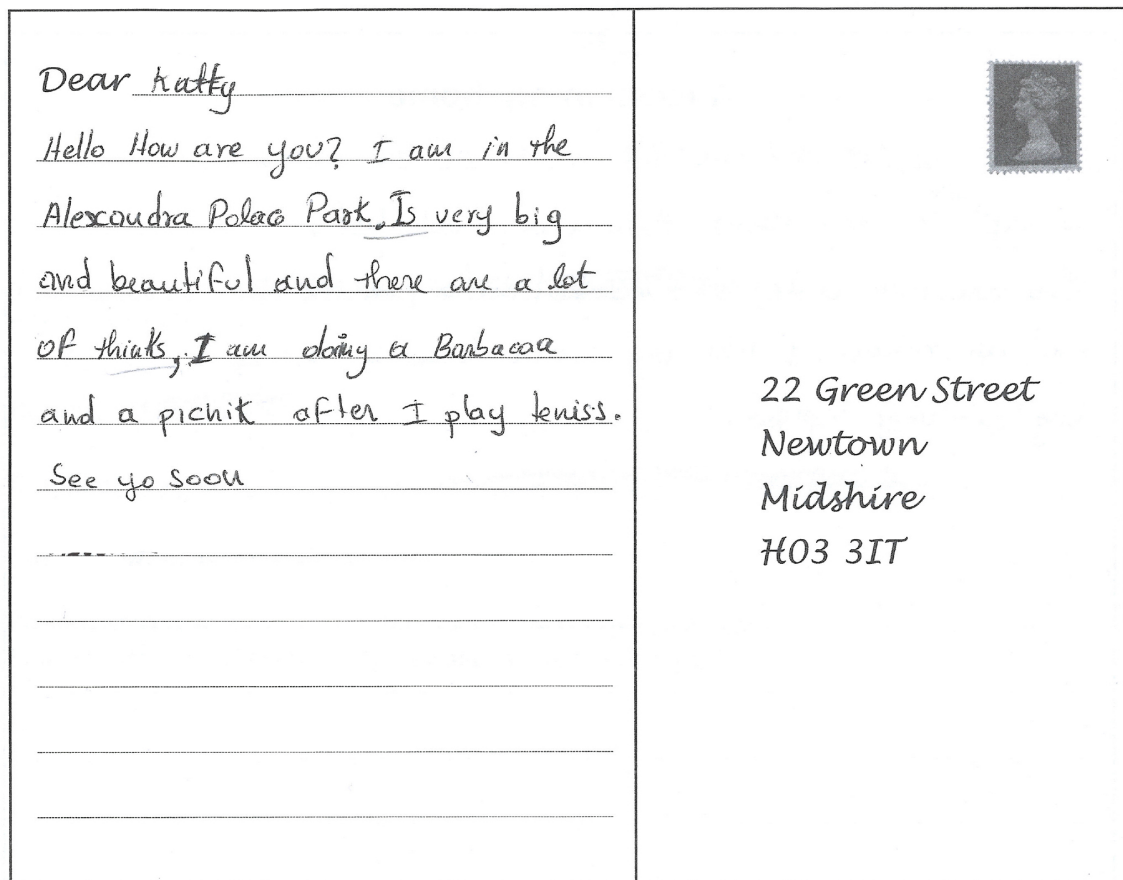 Dear Katty
Hello How are you? I am in the
Alexcoudra Polac Park, Is very big
and beautiful and there are a lot
of thinks, I am doing a Barbacaa
and a pichik after I play teniss.
See yo soon
22 Green Street
Newtown
Midshire
H03 3IT